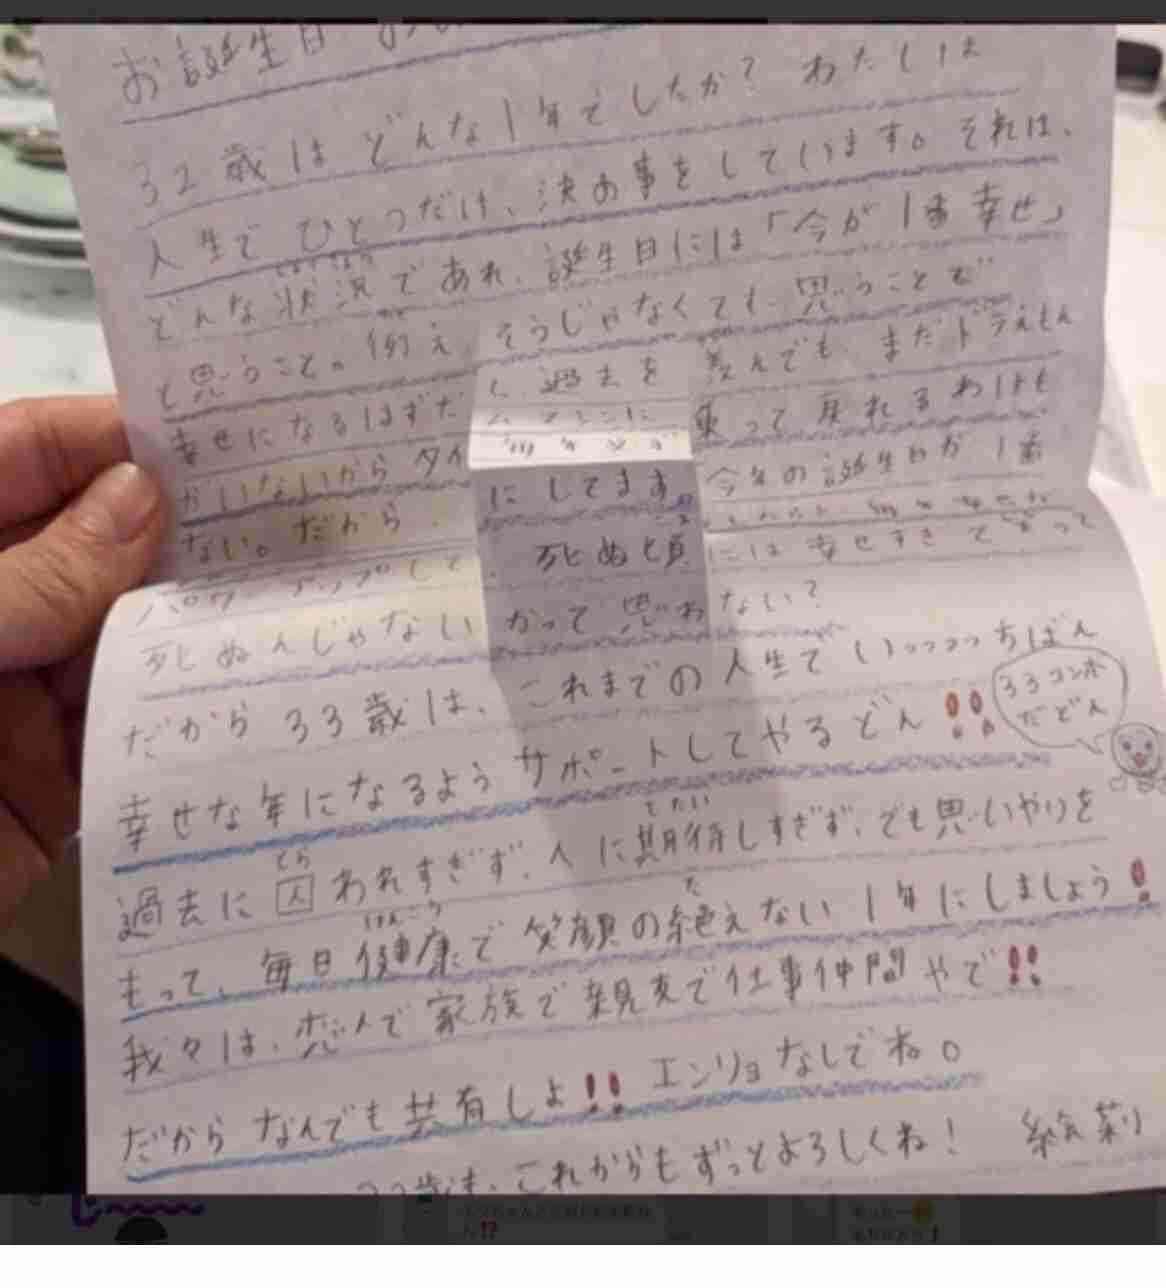 お誕生日
32歳はどんな1年でしたか？わたしは
人生でひとつだけ、決め事をしています。それは、
どんな状況であれ、誕生日には「今が1番幸せ」
と思うこと。例え、そうじゃなくても、思うことで
幸せになるはずだ 過去を 羨んでも、まだドラえもん
がいないから タイ 乗って戻れるわけも
ない。だから、 今年の誕生日が1番
にしてます。
パワーアップして、死ぬ頃には幸せすぎて
死ぬんじゃないかって思わない？
だから33歳は、これまでの人生でいっっっっちばん
幸せな年になるようサポートしてやるどん！！
33コンボ
だどん
過去に囚われすぎず、人に期待しすぎず、でも思いやりを
とら
きたい
もって、毎日健康で笑顔の絶えない1年にしましょう！
けんこう
た
我々は、恋人で家族で親友で仕事仲間やで！！
だからなんでも共有しよ！！エンリョなしでね。
これからもずっとよろしくね！ 絵莉